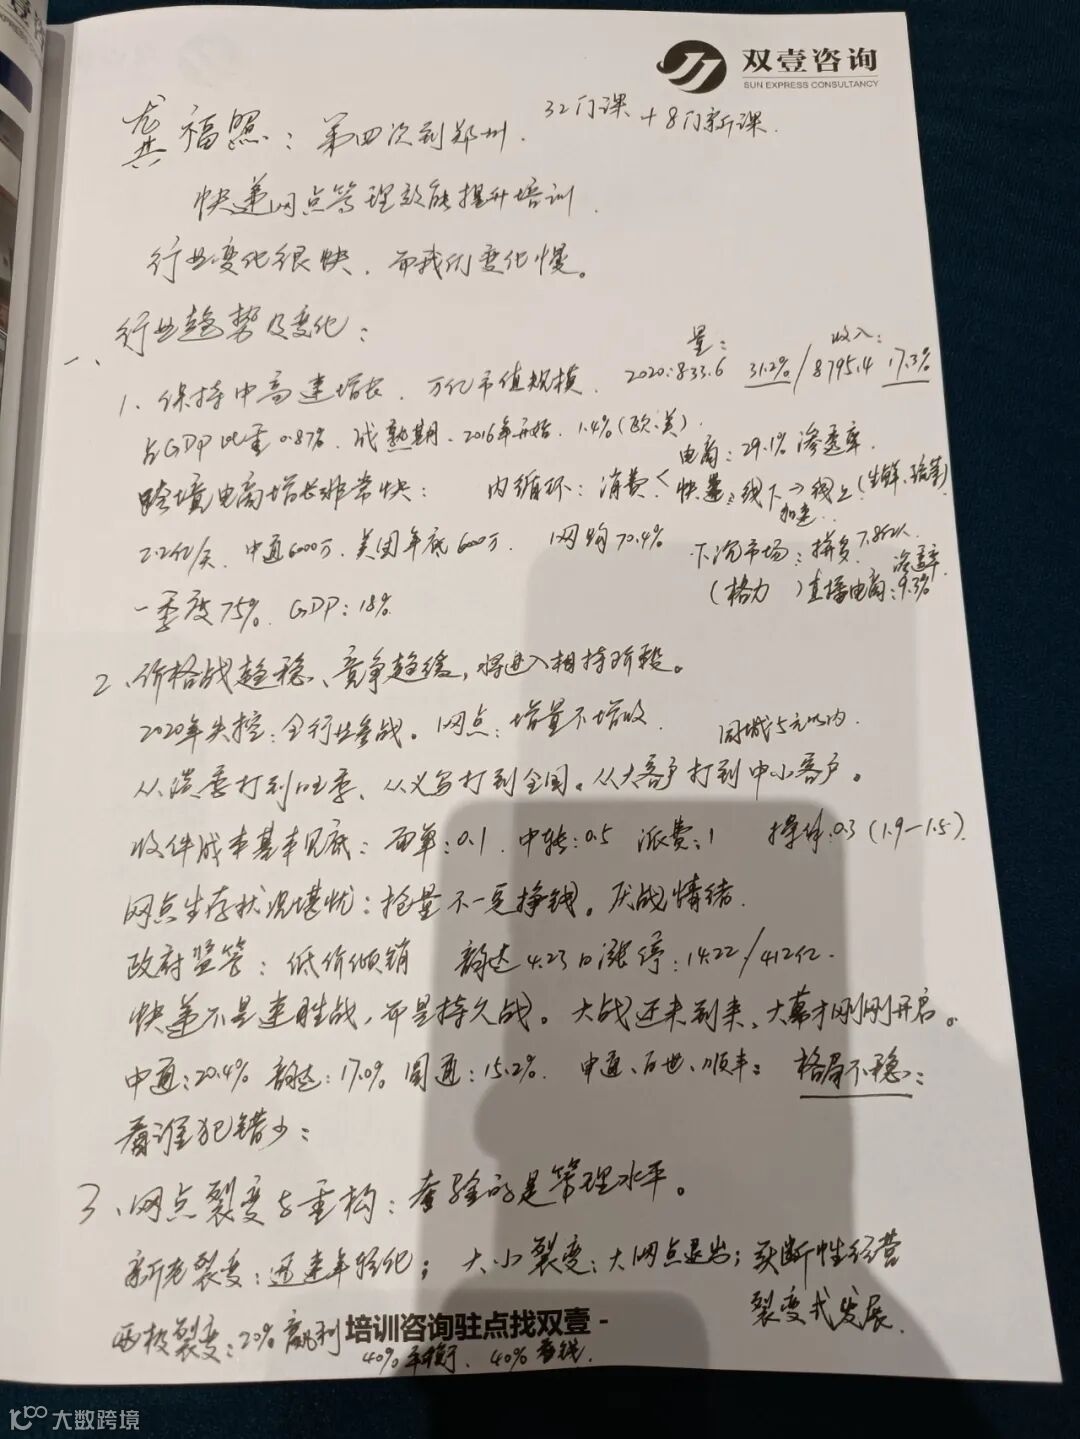 双壹咨询
SUN EXPRESS CONSULTANCY
龚福照：第四次到郑州. 32门课 + 8门新课.
快递网点管理效能提升培训.
行业变化很快，而我们变化慢。
一、行业趋势及变化：
量： 收入：
1、保持中高速增长、万亿市值规模、2020:833.6 31.2% / 8795.4 17.3%
占GDP比重0.87%、成熟期、2016年开始、1.4%(欧、美).
电商：29.1% 渗透率.
跨境电商增长非常快： 内循环：消费< 快递：线下→线上(生鲜、
加速..
2.2亿/天、中通6000万、美团年底6000万、网购70.4% 下沉市场：拼多7.8亿人
渗透率
(格力 ) 直播电商：9.3%
一季度75%. GDP：18%
2、价格战趋稳、竞争趋缓，将进入相持阶段。
2020年失控：全行业参战。网点：增量不增收 同城5元以内.
从淡季打到旺季、从义乌打到全国。从大客户打到中小客户。
收件成本基本见底：面单：0.1 中转：0.5 派费：1 操作：0.3 (1.9-1.5).
网点生存状况堪忧：抢量不一定挣钱。厌战情绪.
政府监管：低价倾销 韵达4.23日涨停：14.22/412亿.
快递不是速胜战，而是持久战。大战还未到来、大幕才刚刚开启。
中通：20.4% 韵达：17.0% 圆通：15.2%. 申通、百世、顺丰： 格局不稳：
看谁犯错少：
3、网点裂变与重构：考验的是管理水平。
新老裂变：迅速年轻化； 大小裂变：大网点退出；买断性经营
裂变式发展.
两极裂变：20%赢利 培训咨询驻点找双壹-
40%平衡、40%亏钱.
大数跨境